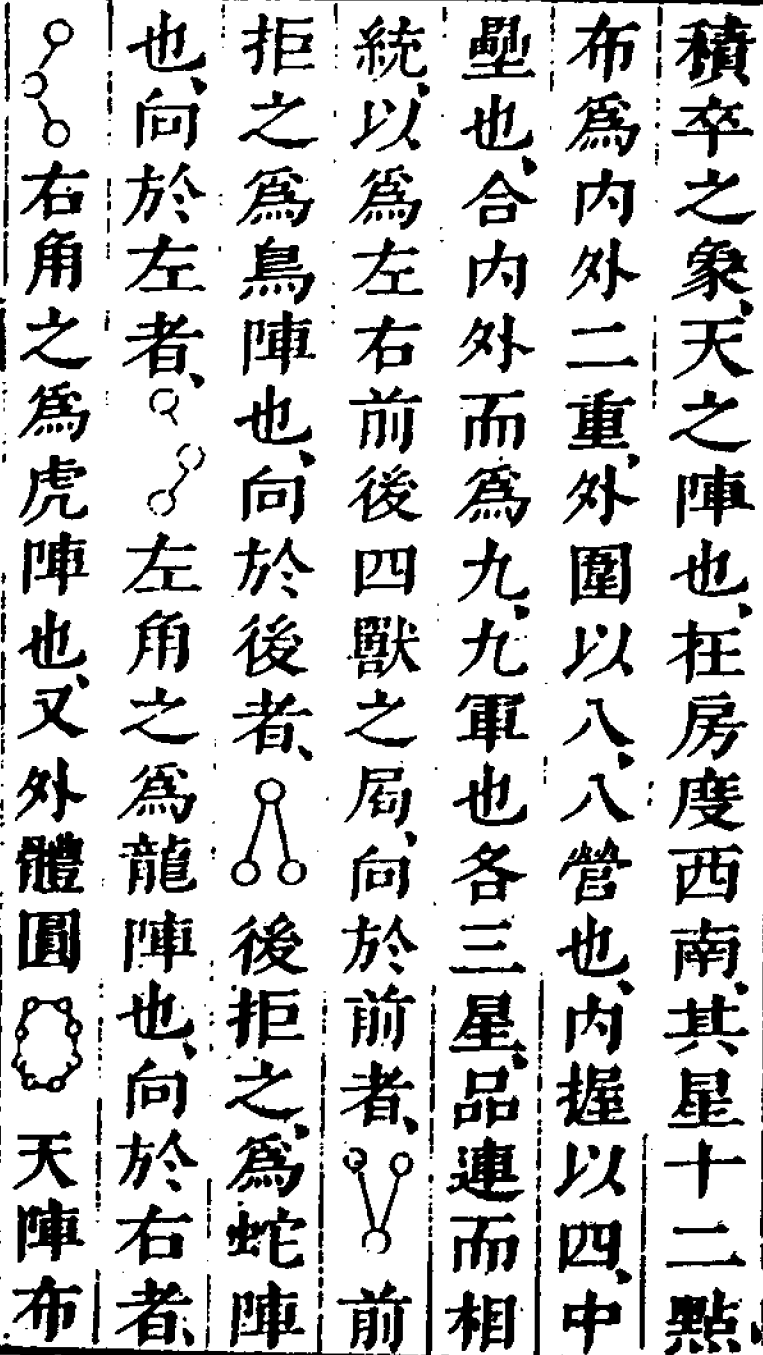 積卒之象、天之陣也、在房度西南、其星十二點、
布爲内外二重、外圍以八、八營也、内握以四、中
壘也、合内外而爲九、九軍也各三星、品連而相
統、以爲左右前後四獸之局、向於前者、前
拒之爲鳥陣也、向於後者、後拒之、爲蛇陣
也、向於左者、左角之爲龍陣也、向於右者、
右角之爲虎陣也、又外體圓天陣布